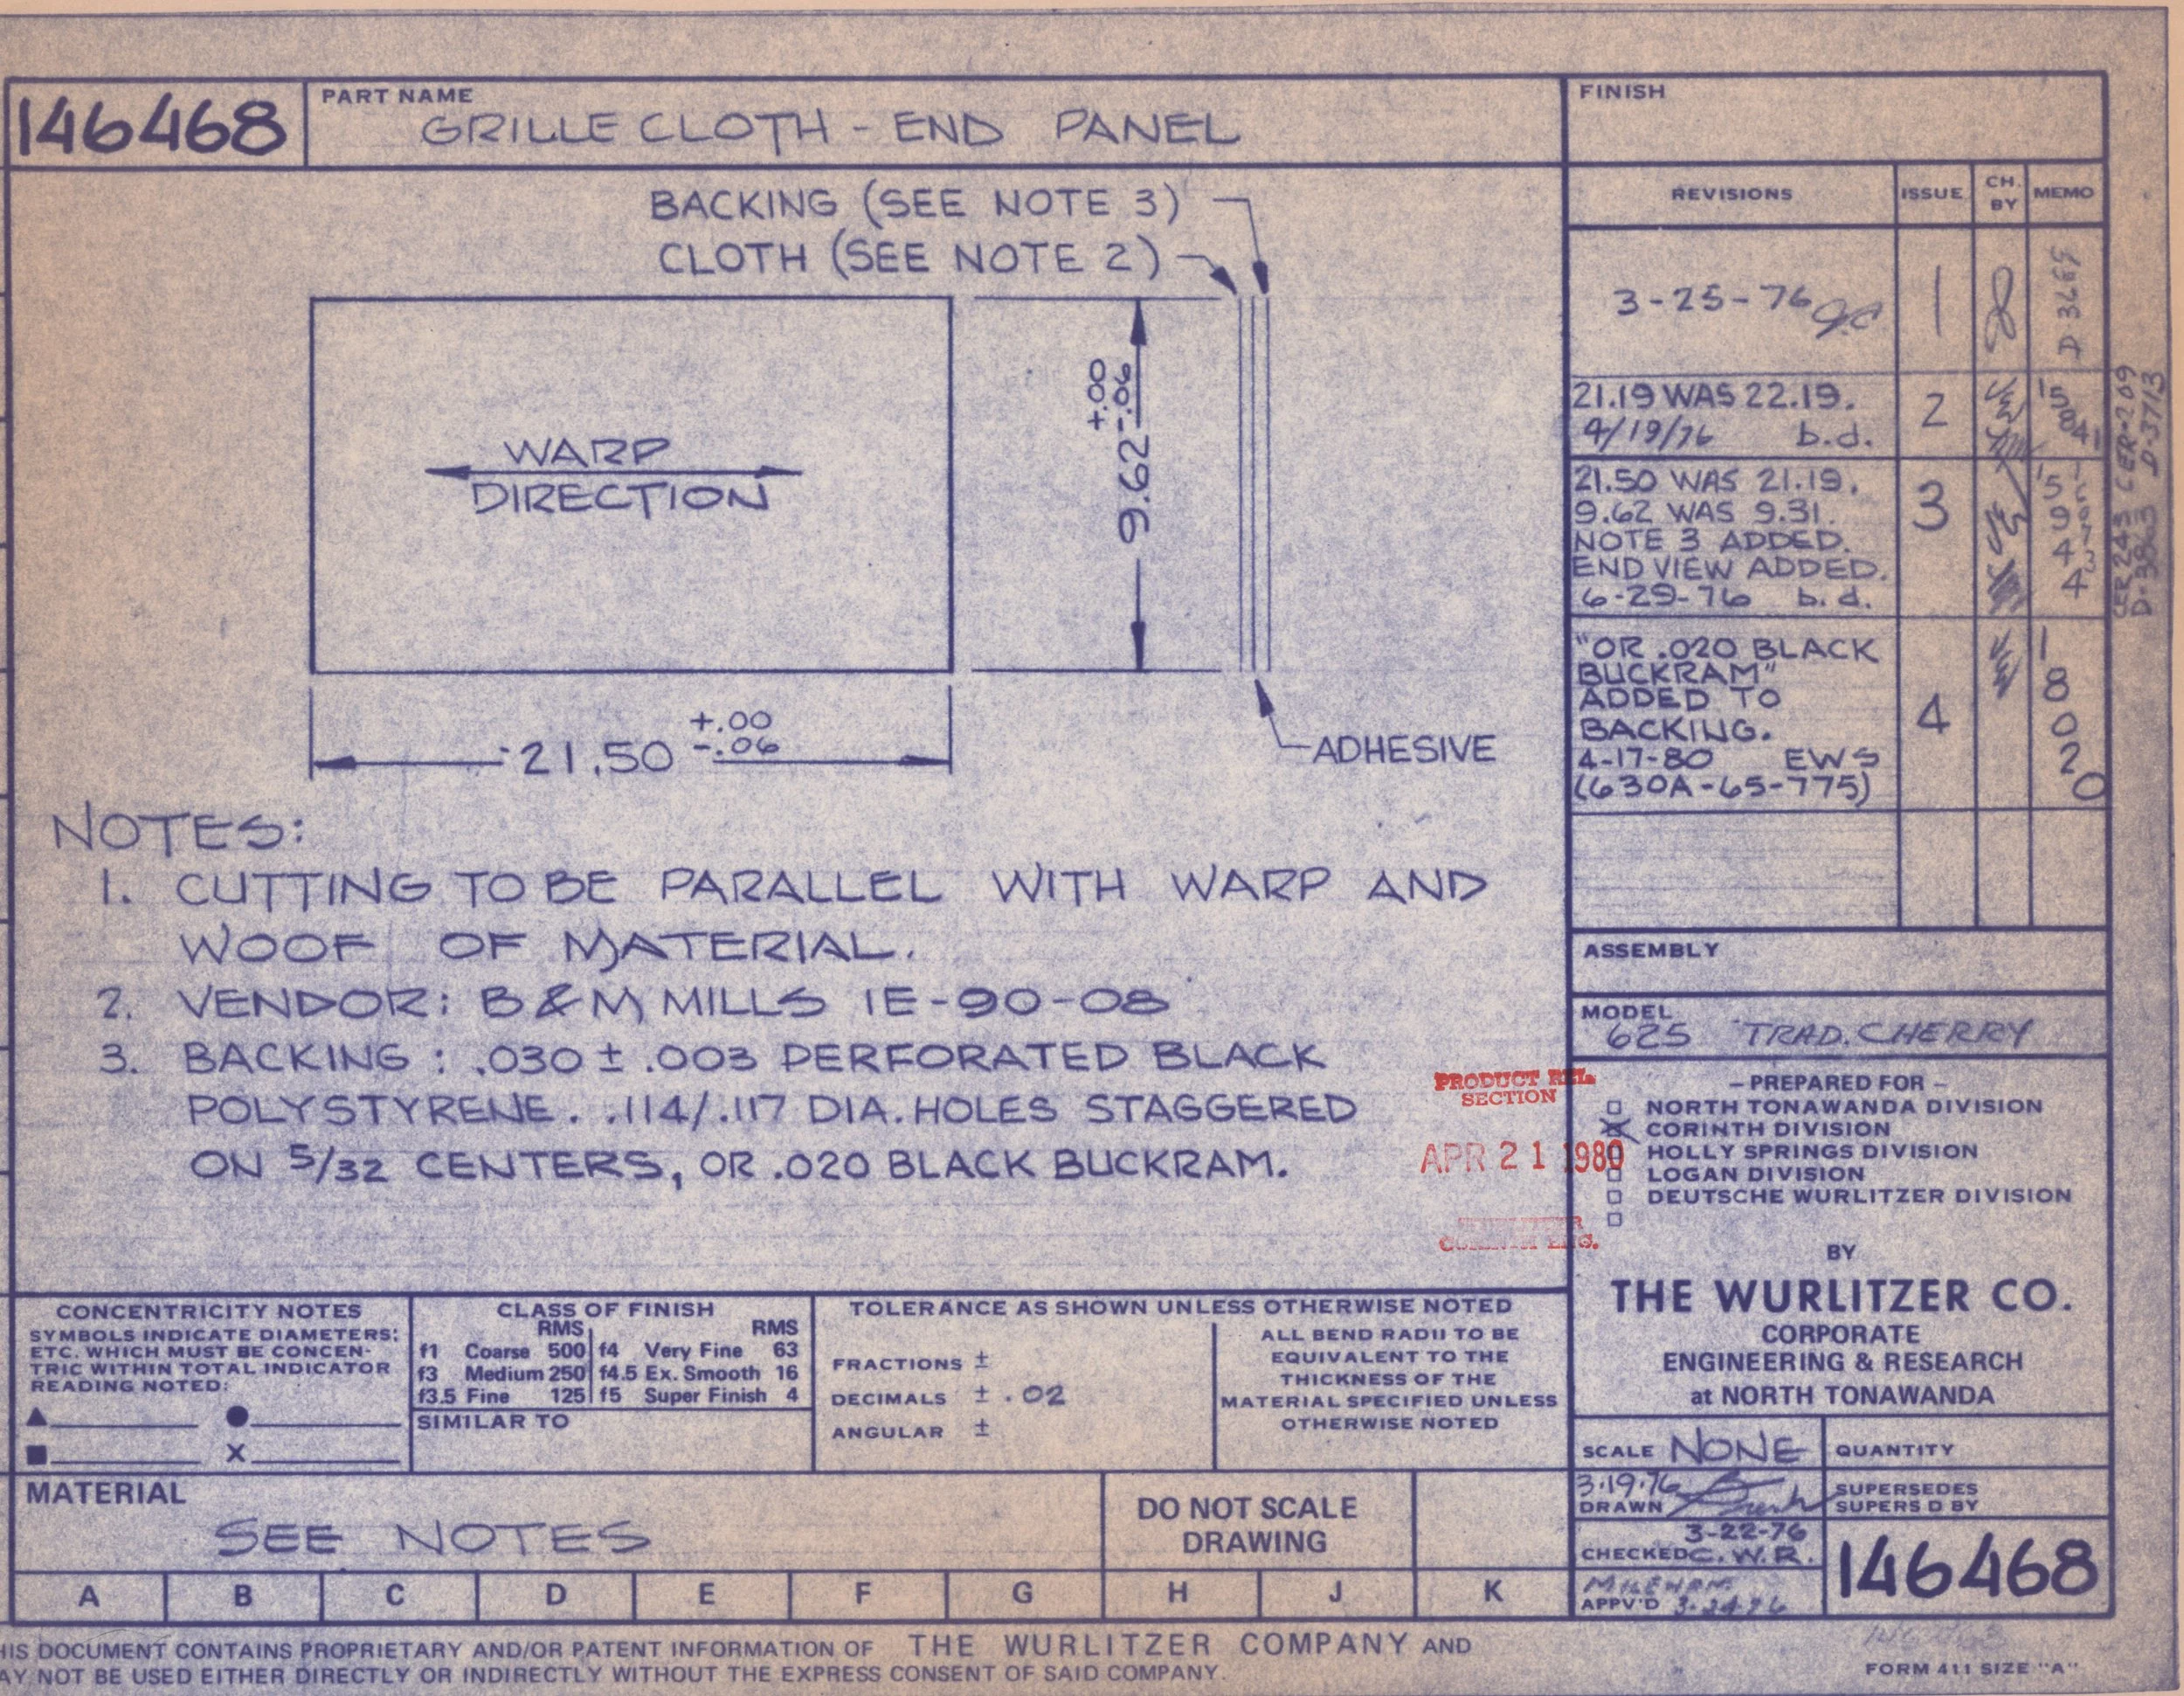 146468
PART NAME
GRILLE CLOTH - END PANEL
FINISH
BACKING (SEE NOTE 3)
CLOTH (SEE NOTE 2)
WARP
DIRECTION
9.62 +.00 -.06
21.50 +.00 -.06
ADHESIVE
NOTES:
1. CUTTING TO BE PARALLEL WITH WARP AND
WOOF OF MATERIAL.
2. VENDOR: B & M MILLS 1E-90-08
3. BACKING : .030 ± .003 PERFORATED BLACK
POLYSTYRENE. .114/.117 DIA. HOLES STAGGERED
ON 5/32 CENTERS, OR .020 BLACK BUCKRAM.
REVISIONS ISSUE CH. BY MEMO
3-25-76 1
21.19 WAS 22.19.
4/19/76 b.d. 2 15841
21.50 WAS 21.19.
9.62 WAS 9.31.
NOTE 3 ADDED.
END VIEW ADDED.
6-29-76 b.d. 3 15944
"OR .020 BLACK
BUCKRAM"
ADDED TO
BACKING.
4-17-80 EWS
(630A-65-775) 4 18020
CER 243 CER-209
D-3713
ASSEMBLY
MODEL
625 TRAD. CHERRY
PRODUCT REL
SECTION
APR 21 1980
– PREPARED FOR –
NORTH TONAWANDA DIVISION
CORINTH DIVISION
HOLLY SPRINGS DIVISION
LOGAN DIVISION
DEUTSCHE WURLITZER DIVISION
BY
THE WURLITZER CO.
CORPORATE
ENGINEERING & RESEARCH
at NORTH TONAWANDA
CONCENTRICITY NOTES
SYMBOLS INDICATE DIAMETERS;
ETC. WHICH MUST BE CONCEN-
TRIC WITHIN TOTAL INDICATOR
READING NOTED:
X
CLASS OF FINISH
RMS RMS
f1 Coarse 500 f4 Very Fine 63
f3 Medium 250 f4.5 Ex. Smooth 16
f3.5 Fine 125 f5 Super Finish 4
SIMILAR TO
TOLERANCE AS SHOWN UNLESS OTHERWISE NOTED
FRACTIONS ±
DECIMALS ± .02
ANGULAR ±
ALL BEND RADII TO BE
EQUIVALENT TO THE
THICKNESS OF THE
MATERIAL SPECIFIED UNLESS
OTHERWISE NOTED
SCALE NONE
QUANTITY
3-19-76
DRAWN
SUPERSEDES
SUPERS D BY
3-22-76
CHECKED C.W.R.
MILEHAM
APPV'D 3-24-76
146468
MATERIAL
SEE NOTES
DO NOT SCALE
DRAWING
A B C D E F G H J K
HIS DOCUMENT CONTAINS PROPRIETARY AND/OR PATENT INFORMATION OF THE WURLITZER COMPANY AND
AY NOT BE USED EITHER DIRECTLY OR INDIRECTLY WITHOUT THE EXPRESS CONSENT OF SAID COMPANY.
FORM 411 SIZE "A"